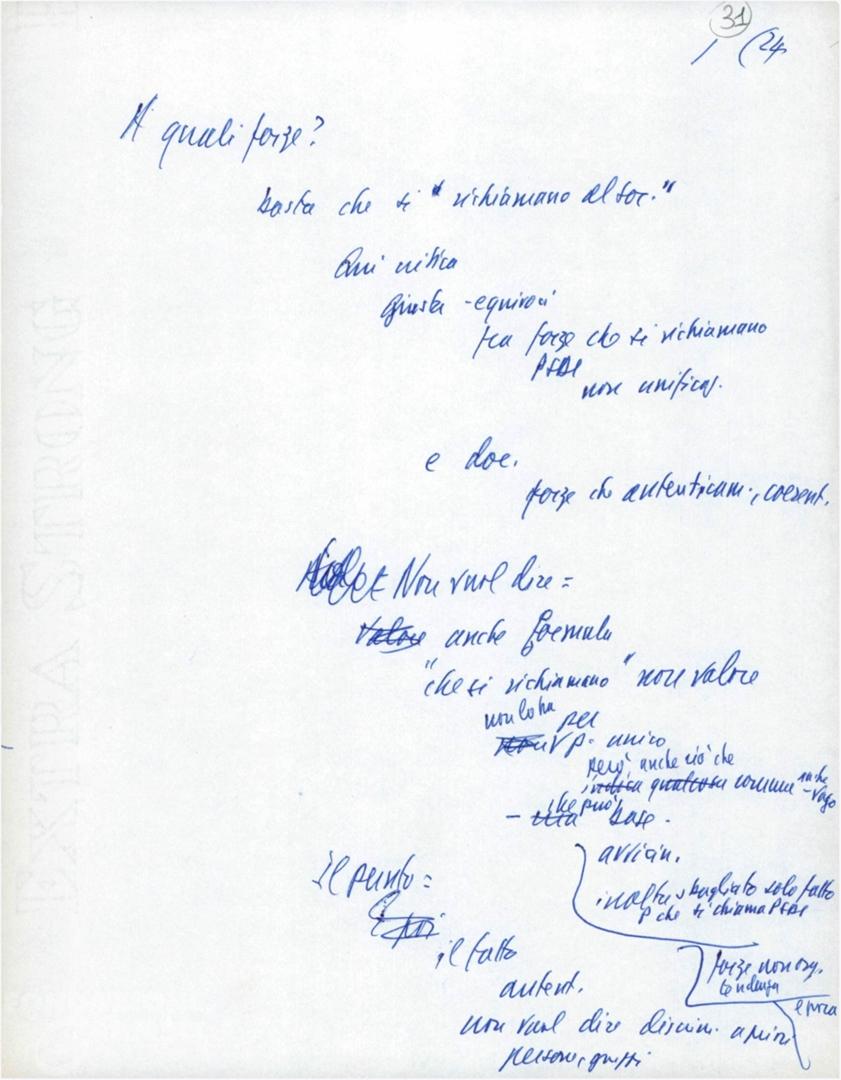 31
1 (24
A quali forze?
basta che si "richiamano al soc."
Qui critica
giusta - equivoci
fra forze che si richiamano
PSDI
non unificaz.
e doc.
forze che autenticam., coerent.
Non vuol dire =
Valore anche formula
"che si richiamano" non valore
non lo ha per
non V p. unico
però anche ciò che
indica qualcosa comune anche
- vago
che può
- una base.
avvicin.
inoltre sbagliato solo fatto
P che si chiama PSDI
il punto =
E poi
il fatto
autent.
forze non org.
tendenza
non vuol dire discrim. a priori
persone, gruppi
EXTRA STRONG